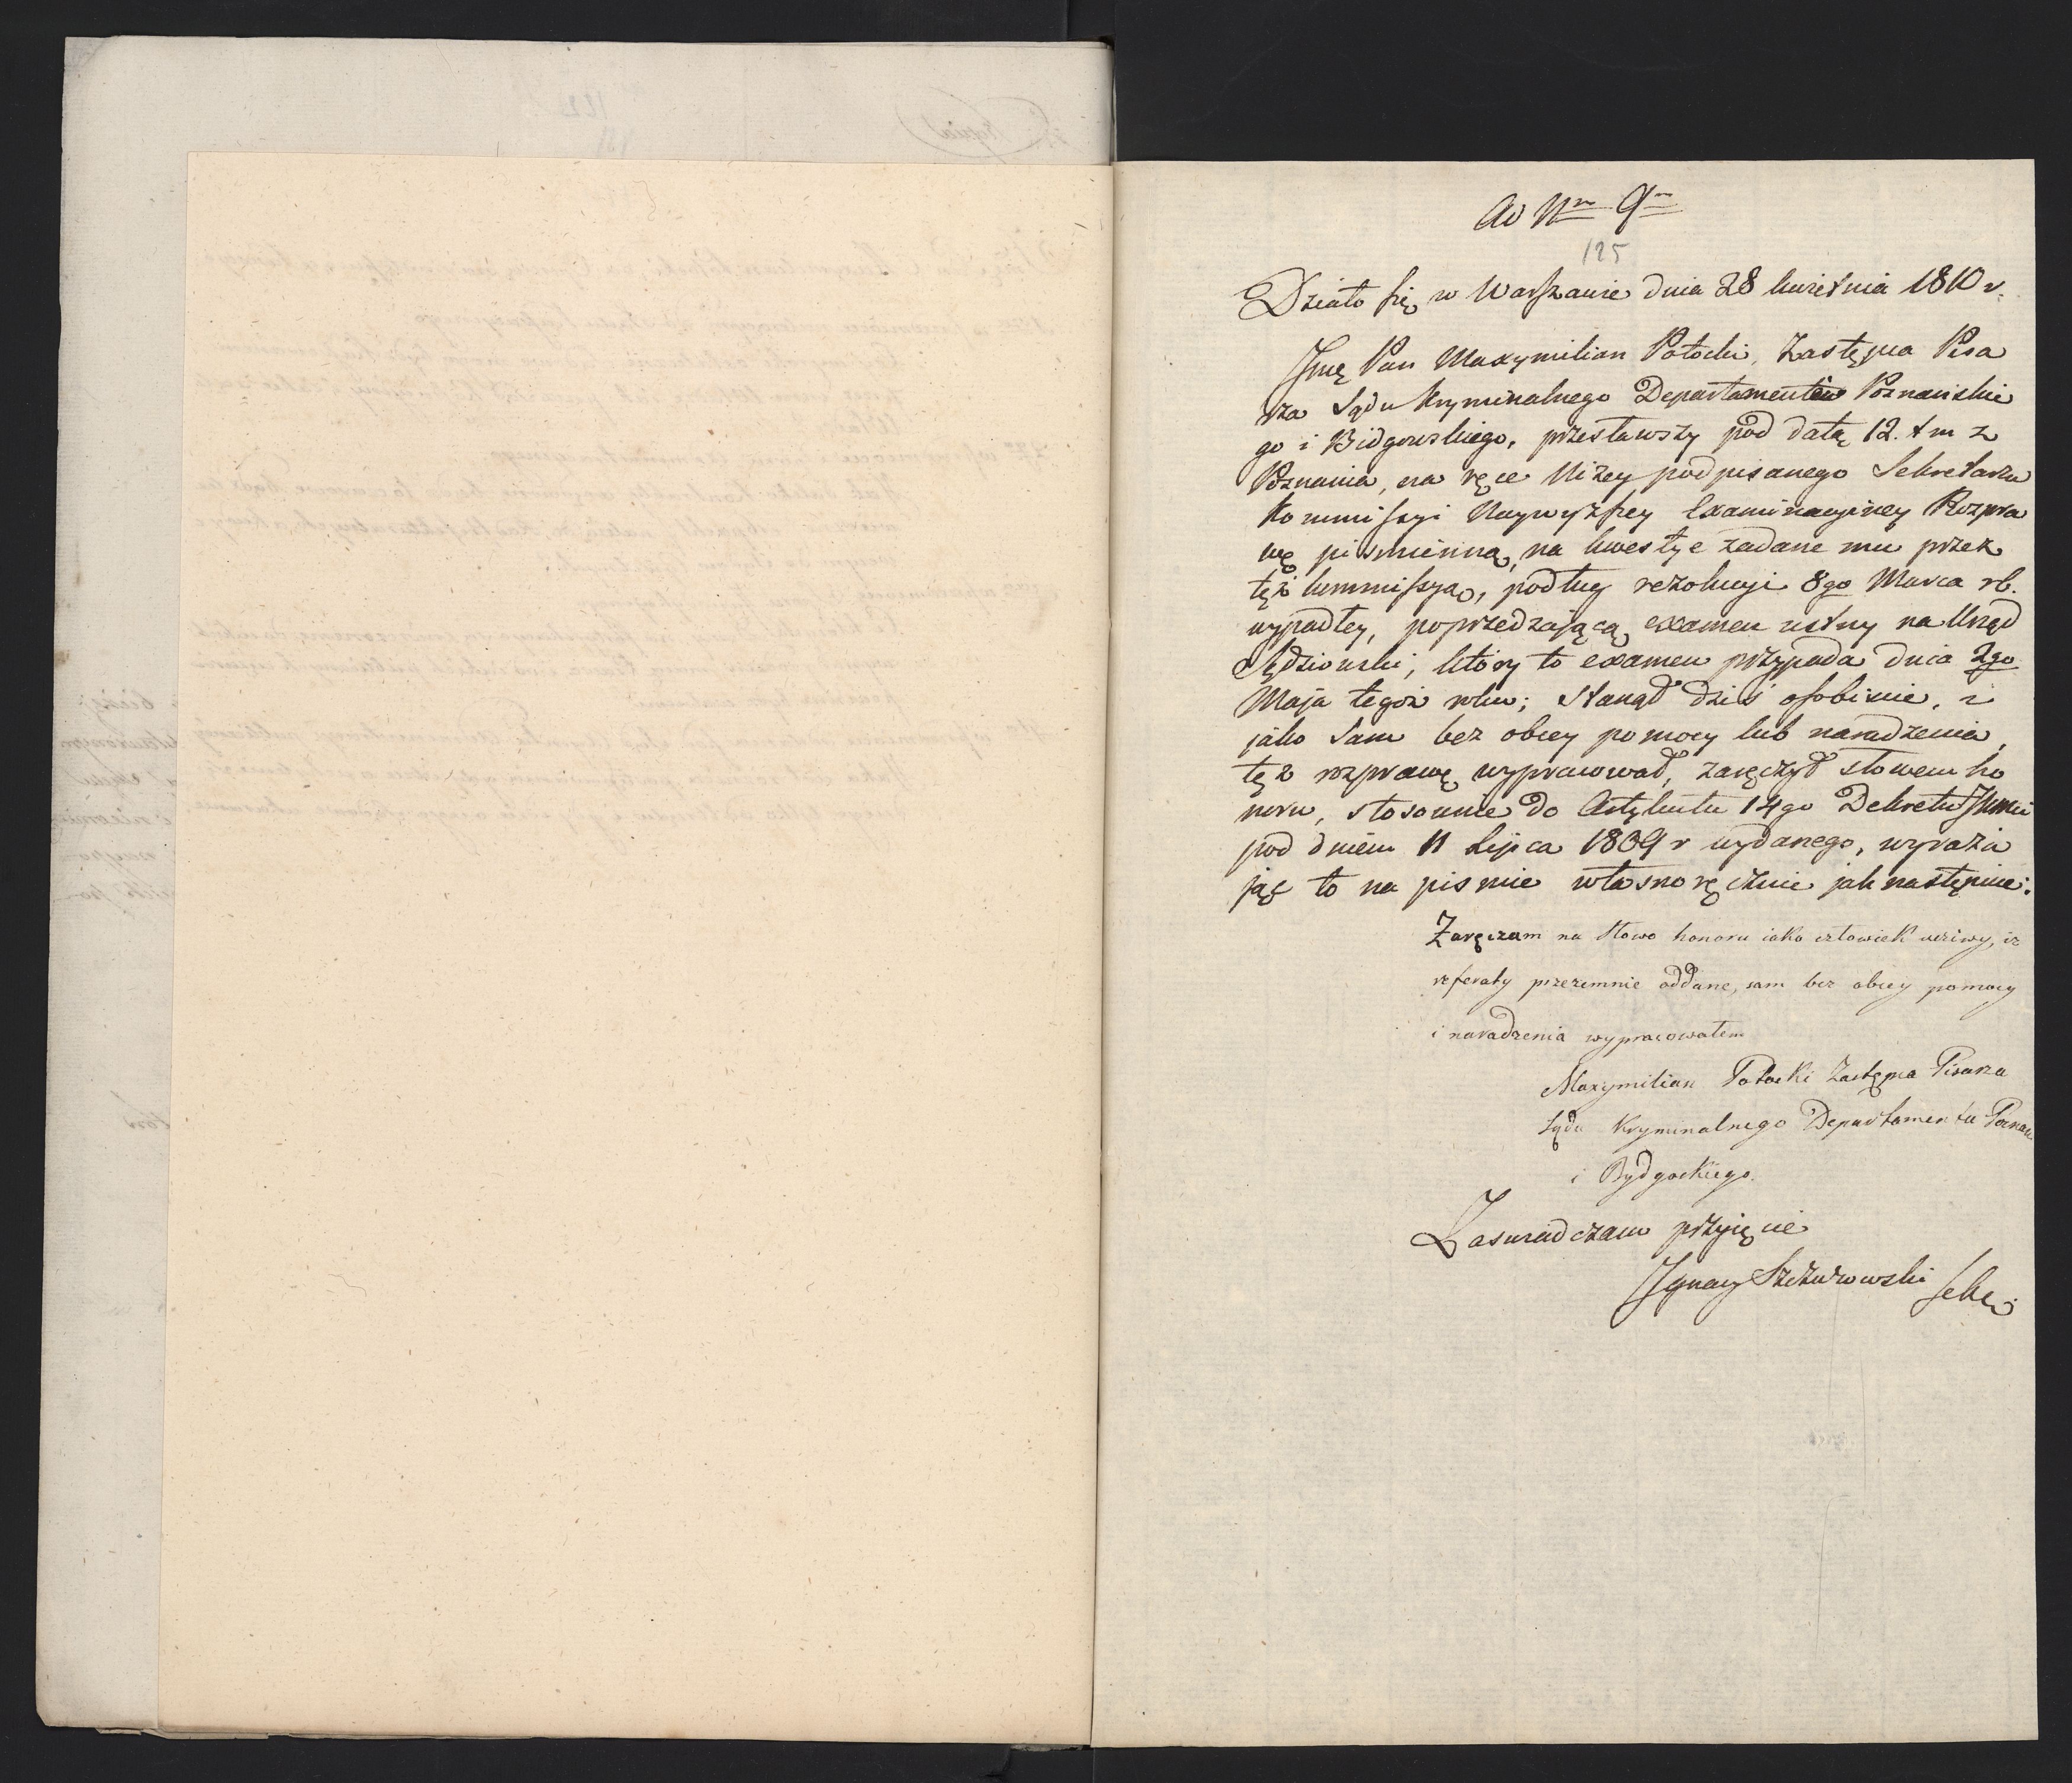 Ad Nrm 9m
125
Działo się w Warszawie dnia 28 kwietnia 1810 r.
Jmę Pan Maxymilian Potocki, Zastępca Pisa
rza Sądu Kryminalnego Departamentów Poznańskie
go i Bidgowskiego, przesławszy pod datą 12. t m z
Poznania, na ręce Niżey podpisanego Sekretarza
Kommissyi Naywyższey Examinacyiney Rozpra
wę piśmienną, na kwestye zadane mu przez
tęż kommissyą, podług rezolucyi 8go Marca rb.
wypadłey, poprzedzającą examen ustny na Urząd
Sędziowski, który to examen przypada dnia 2go
Maja tegoż roku; Stanął dziś osobiście, i
jako Sam bez obcey pomocy lub naradzenia,
tęż rozprawę wypracował, zaręczył słowem ho
noru, stosownie do Artykułu 14go Dekretu
pod dniem 11 Lipca 1809 r wydanego, wyraża
jąc to na pismie własnoręcznie jak następuie:
Zaręczam na słowo honoru iako człowiek ucziwy, iż
referaty przezemnie oddane, sam bez obcey pomocy
i naradzenia wypracowałem
Maxymilian Potocki Zastępca Pisarza
Sądu Kryminalnego Departamentu Poznań.
i Bydgoskiego.
Zaswiadczam przyięcie
Ignacy Szczurowski Sekr